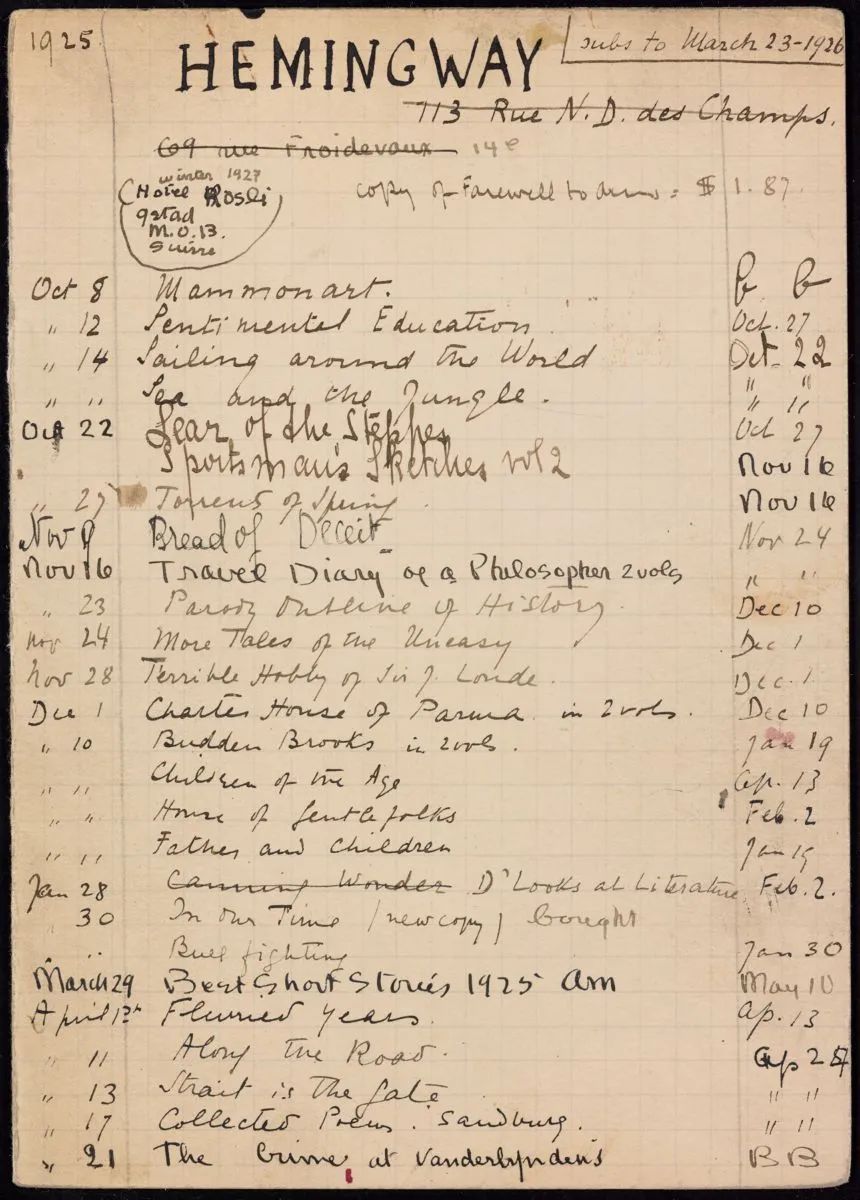 1925
HEMINGWAY
subs to March 23-1926
113 Rue N.D. des Champs.
69 rue Froidevaux 14e
winter 1927
Hotel Rosli
gstad
M.O.B.
Suisse
copy of Farewell to Arms = $ 1.87.
Oct 8 Mammonart. B B
" 12 Sentimental Education Oct. 27
" 14 Sailing around the World Oct. 22
" " Sea and the Jungle. " "
" "
Oct 22 Lear of the Steppes Oct 27
Sportsman's Sketches vol 2 Nov 16
" 27 Torrents of Spring Nov 16
Nov 9 Bread of Deceit Nov 24
Nov 16 Travel Diary of a Philosopher 2 vols " "
" 23 Parody Outline of History. Dec 10
Nov 24 More Tales of the Uneasy Dec 1
Nov 28 Terrible Hobby of Sir J. Londe. Dec. 1
Dec 1 Charter House of Parma in 2 vols. Dec 10
" 10 Budden Brooks in 2 vols. Jan 19
" " Children of the Age Ap. 13
" " House of Gentlefolks Feb. 2
" " Fathers and Children Jan 19
Jan 28 Canning Wonder D' Looks at Literature Feb. 2.
30 In our Time (new copy) bought
" Bull fighting Jan 30
March 29 Best Short Stories 1925 Am May 10
April 12th Flurried Years. Ap. 13
" 11 Along the Road. Ap 25
" 13 Strait is the Gate " "
" 17 Collected Poems. Sandburg. " "
" 21 The Crime at Vanderlynden's B B